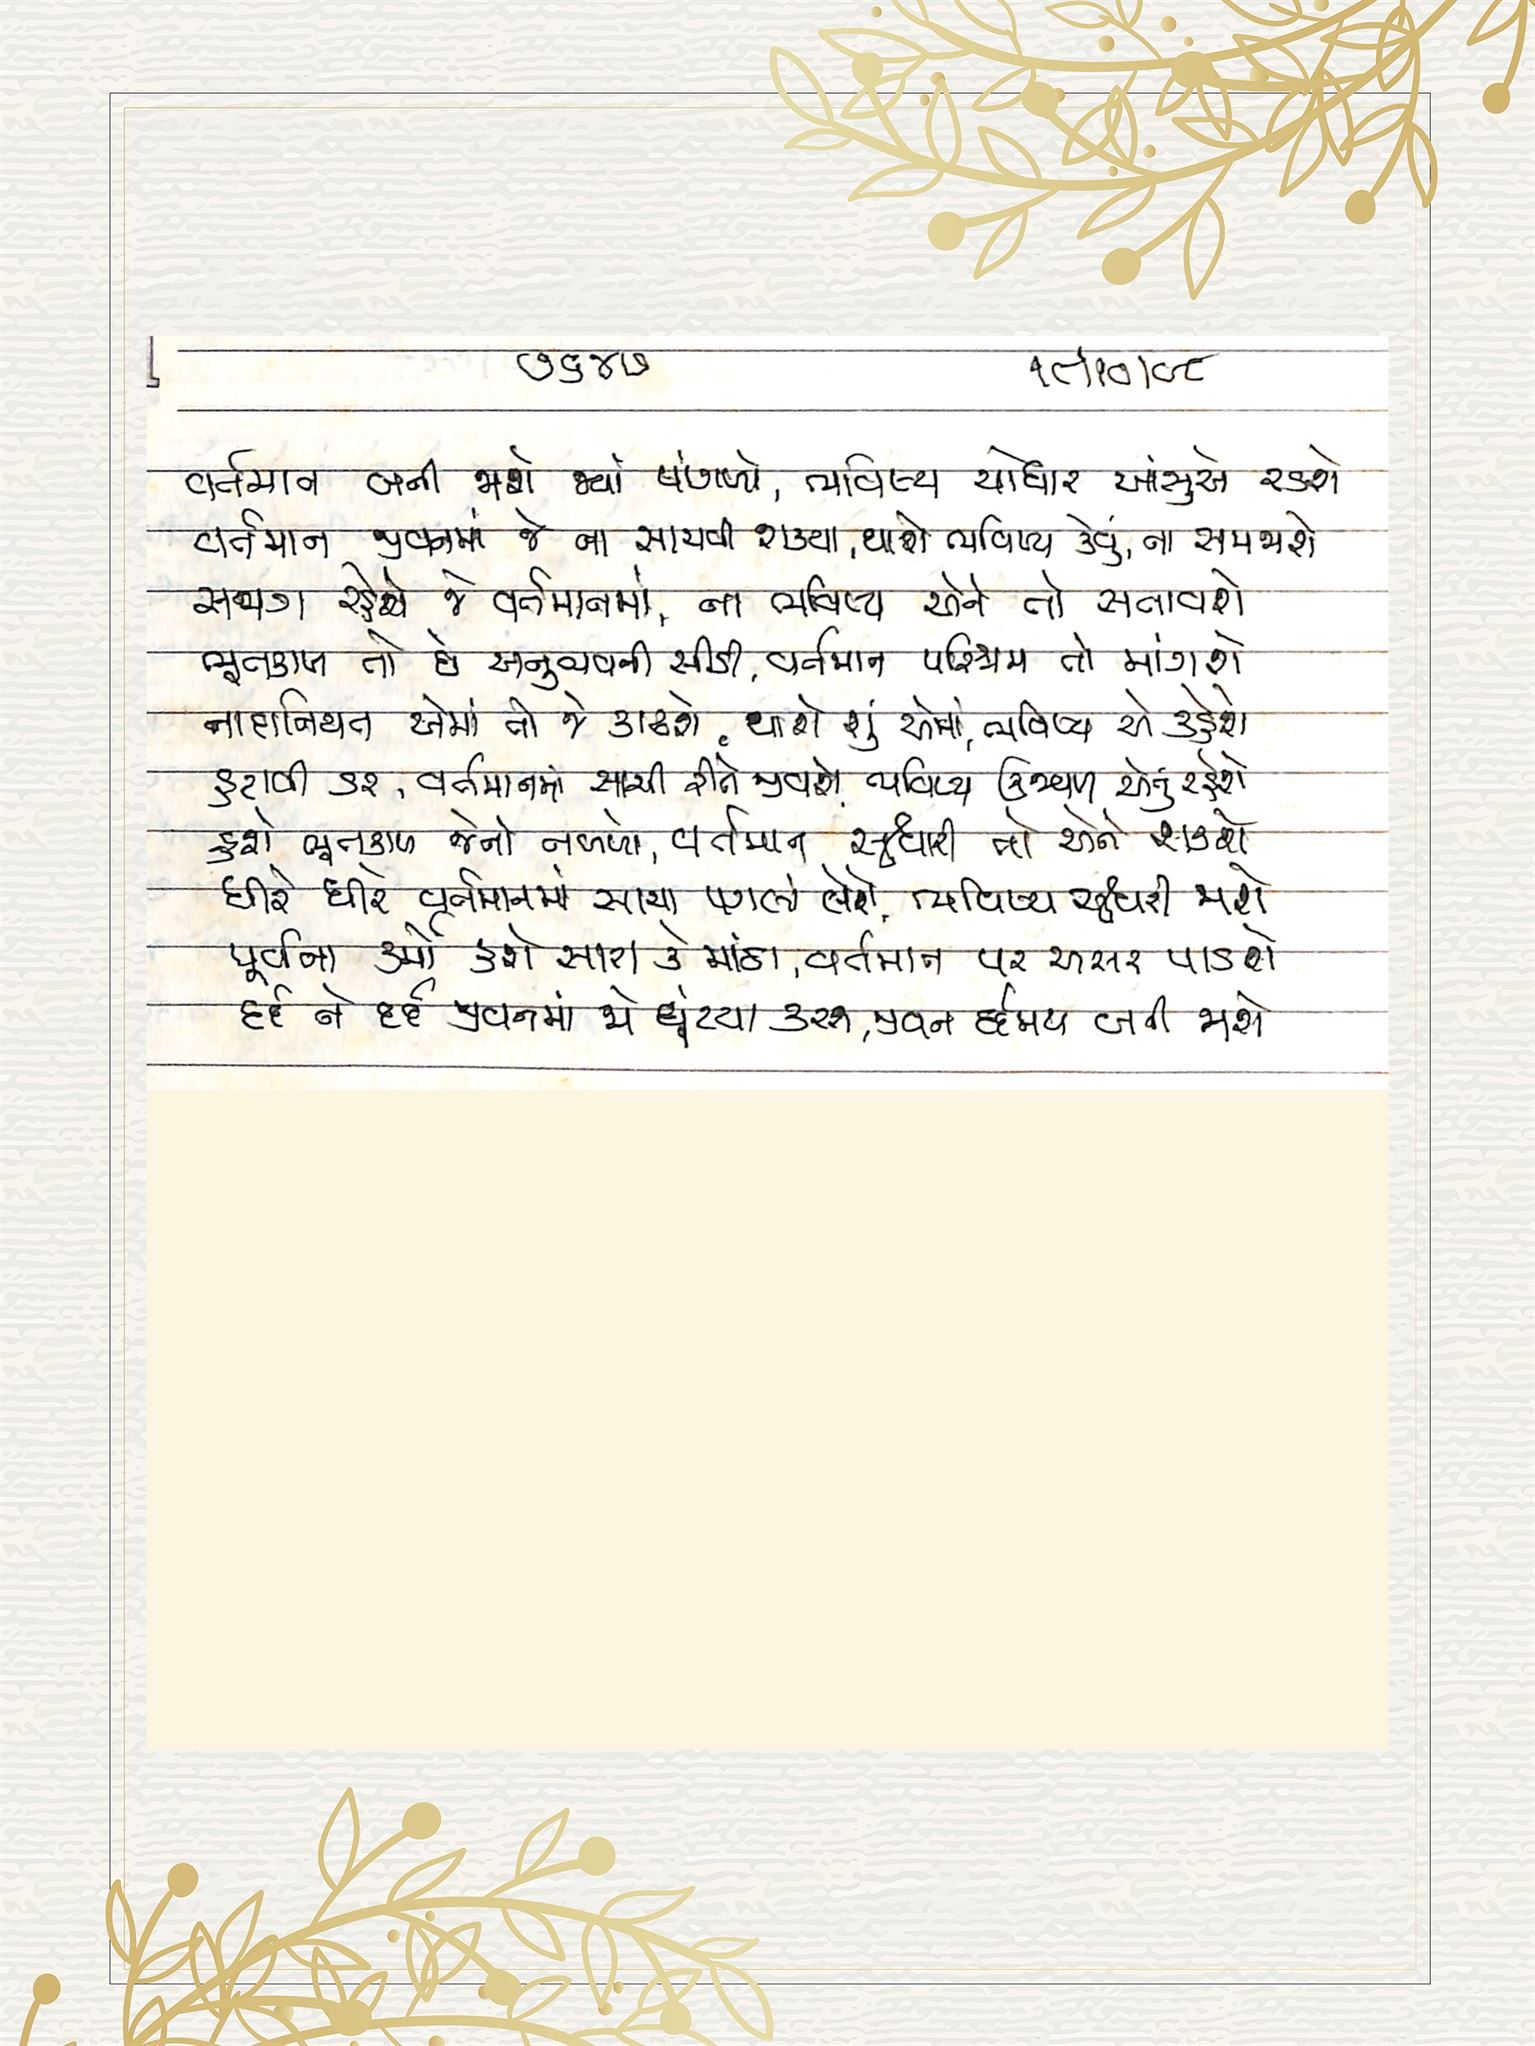 ૭૬૪૭ ૧૯/૧૦/૦૮
વર્તમાન બની જાશે જ્યાં પાંગળો, ભવિષ્ય ચોધાર આંસુએ રડશે
વર્તમાન જીવનમાં જે ના સાચવી શક્યા, થાશે ભવિષ્ય કેવું, ના સમજાશે
સજાગ રહેશે જે વર્તમાનમાં, ના ભવિષ્ય એને તો સતાવશે
ભૂતકાળ તો છે અનુભવની સીડી, વર્તમાન પરિશ્રમ તો માંગશે
નાહાનિયત એમાં તો જે કાઢશે, થાશે શું એમાં, ભવિષ્ય એ કહેશે
હટાવી ડર, વર્તમાનમાં સાચી રીતે જીવશે, ભવિષ્ય ઉજ્જવળ એનું રહેશે
હશે ભૂતકાળ જેનો નબળો, વર્તમાન સુધારી તો એને શકશે
ધીરે ધીરે વર્તમાનમાં સાચા પગલાં લેશે, ભવિષ્ય સુધરી જાશે
પૂર્વના કર્મો હશે સારા કે માઠા, વર્તમાન પર અસર પાડશે
દર્દ ને દર્દ જીવનમાં જો ઘૂંટયા કરશું, જીવન દર્દમય બની જાશે